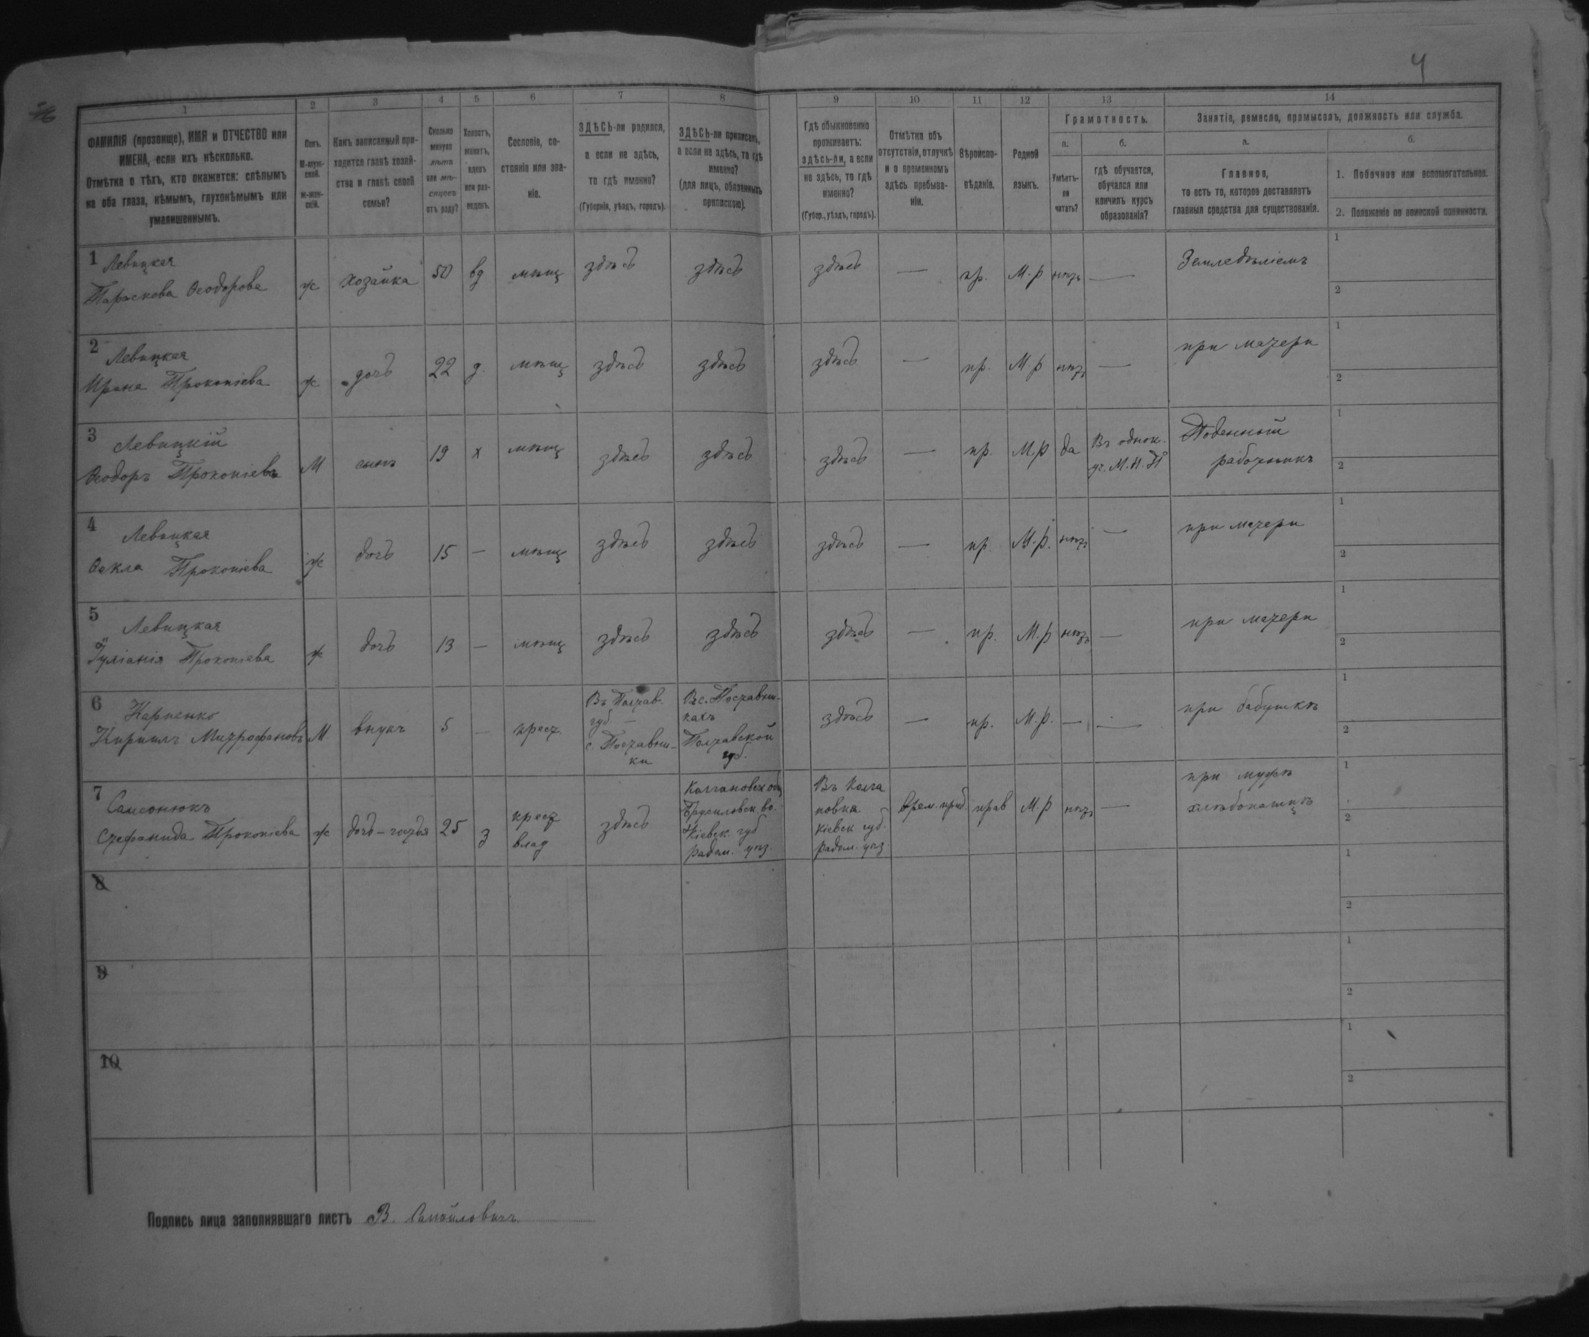 4
1 2 3 4 5 6 7 8 9 10 11 12 13 14
ФАМИЛІЯ (прозвище), ИМЯ и ОТЧЕСТВО или
ИМЕНА, если ихъ нѣсколько.
Отмѣтка о тѣхъ, кто окажется: слѣпымъ
на оба глаза, нѣмымъ, глухонѣмымъ или
умалишеннымъ.
Полъ.
М-мужской.
Ж-женскій.
Какъ записанный при-
ходится главѣ хозяй-
ства и главѣ своей
семьи?
Сколько
минуло
лѣтъ
или мѣ-
сяцевъ
отъ роду?
Холостъ,
женатъ,
вдовъ
или раз-
веденъ.
Сословіе, со-
стояніе или зва-
ніе.
ЗДѢСЬ-ли родился,
а если не здѣсь,
то гдѣ именно?
(Губернія, уѣздъ, городъ).
ЗДѢСЬ-ли приписанъ,
а если не здѣсь, то гдѣ
именно?
(для лицъ, обязанныхъ
припискою).
Гдѣ обыкновенно
проживаетъ:
здѣсь-ли, а если
не здѣсь, то гдѣ
именно?
(Губер., уѣздъ, городъ).
Отмѣтка объ
отсутствіи, отлучкѣ
и о временномъ
здѣсь пребыва-
ніи.
Вѣроиспо-
вѣданіе.
Родной
языкъ.
Грамотность.
а. б.
Умѣетъ-
ли
читать?
гдѣ обучается,
обучался или
кончилъ курсъ
образованія?
Занятіе, ремесло, промыселъ, должность или служба.
а. б.
Главное,
то есть то, которое доставляетъ
главныя средства для существованія.
1. Побочное или вспомогательное.
2. Положеніе по воинской повинности.
1 Левицкая
Параскева Ѳеодорова ж хозяйка 50 вд мѣщ здѣсь здѣсь здѣсь — пр. М.р нѣтъ — Земледѣліемъ 1
2
2 Левицкая
Ирина Прокопіева ж дочь 22 д мѣщ здѣсь здѣсь здѣсь — пр. М.р нѣтъ — при матери 1
2
3 Левицкій
Ѳеодоръ Прокопіевъ М сынъ 19 х мѣщ здѣсь здѣсь здѣсь — пр. М.р да Въ однок. Поденный 1
уч. М.Н.П рабочникъ 2
4 Левицкая
Ѳекла Прокопіева ж дочь 15 — мѣщ здѣсь здѣсь здѣсь — пр М.р. нѣтъ — при матери 1
2
5 Левицкая
Іуліанія Прокопіева ж дочь 13 — мѣщ здѣсь здѣсь здѣсь — пр. М.р нѣтъ — при матери 1
2
6 Карпенко
Кириллъ Митрофановъ М внукъ 5 — крест
Въ Полтав.
губ —
с. Поставни-
ки
Въ с. Поставни-
кахъ
Полтавской
губ.
здѣсь — пр. М.р. — — при бабушкѣ 1
2
7 Самсонюкъ
Стефанида Прокопіева ж дочь-чужая 25 з
крест
влад
здѣсь
Брусиловск. во
Кіевск. губ
радом. уѣз.
новка
Кіевск губ.
радом. уѣз
Врем. преб прав М.р нѣтъ —
при мужѣ
хлѣбопашецъ
1
2
8 1
2
9 1
2
10 1
2
Подпись лица заполнявшаго листъ В. Самойловичъ